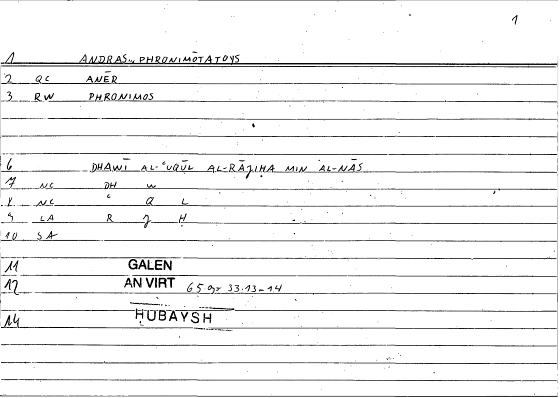 1
1 ANDRAS.. PHRONIMŌTATOYS
2 QC ANĒR
3 RW PHRONIMOS
6 DHAWĪ AL-ʿUQŪL AL-RĀJIḤA MIN AL-NĀS
7 NC DH W
8 NC ʿ Q L
9 LA R J Ḥ
10 SA
11 GALEN
12 AN VIRT 65 33.13-14
14 ḤUBAYSH